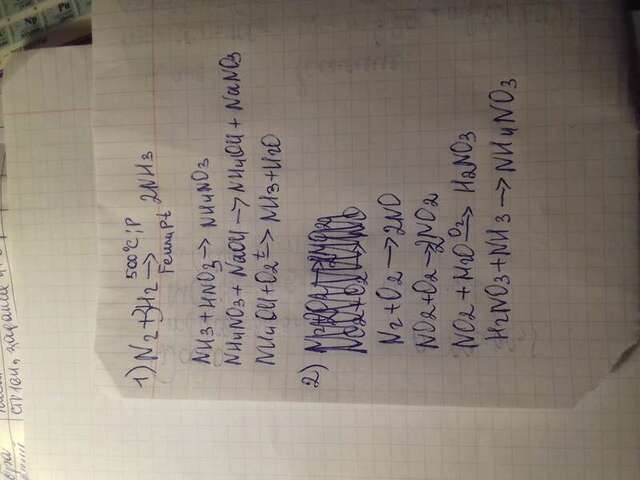 стр 161, задание
1) N2 + 3H2 500°C; P → Fe или Pt 2NH3
NH3 + HNO3 → NH4NO3
NH4NO3 + NaOH → NH4OH + NaNO3
NH4OH + O2 t → NH3 + H2O
2)
N2 + O2 → 2NO
NO2 + O2 → 2NO2
NO2 + H2O O2 → H2NO3
H2NO3 + NH3 → NH4NO3